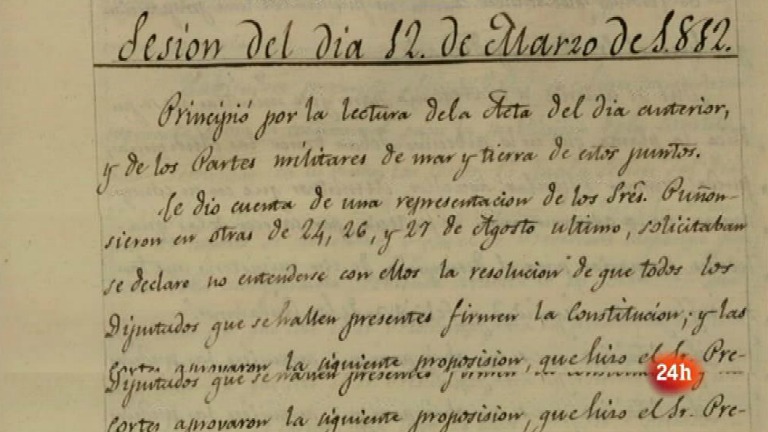 Sesion del dia 12. de Marzo de 1.812.
Principió por la lectura dela Acta del dia anterior,
y de los Partes militares de mar y tierra de estos puntos.
Se dio cuenta de una representacion de los Sres. Puñon-
sieron en otras de 24, 26, y 27 de Agosto ultimo, solicitaban
se declare no entenderse con ellos la resolucion de que todos los
Diputados que se hallen presentes firmen la Constitucion; y las
Cortes aprovaron la siguiente proposision, que hizo el Sr. Pre-
Diputados que se hallen presentes
Cortes aprovaron la siguiente proposision, que hizo el Sr. Pre-
24h